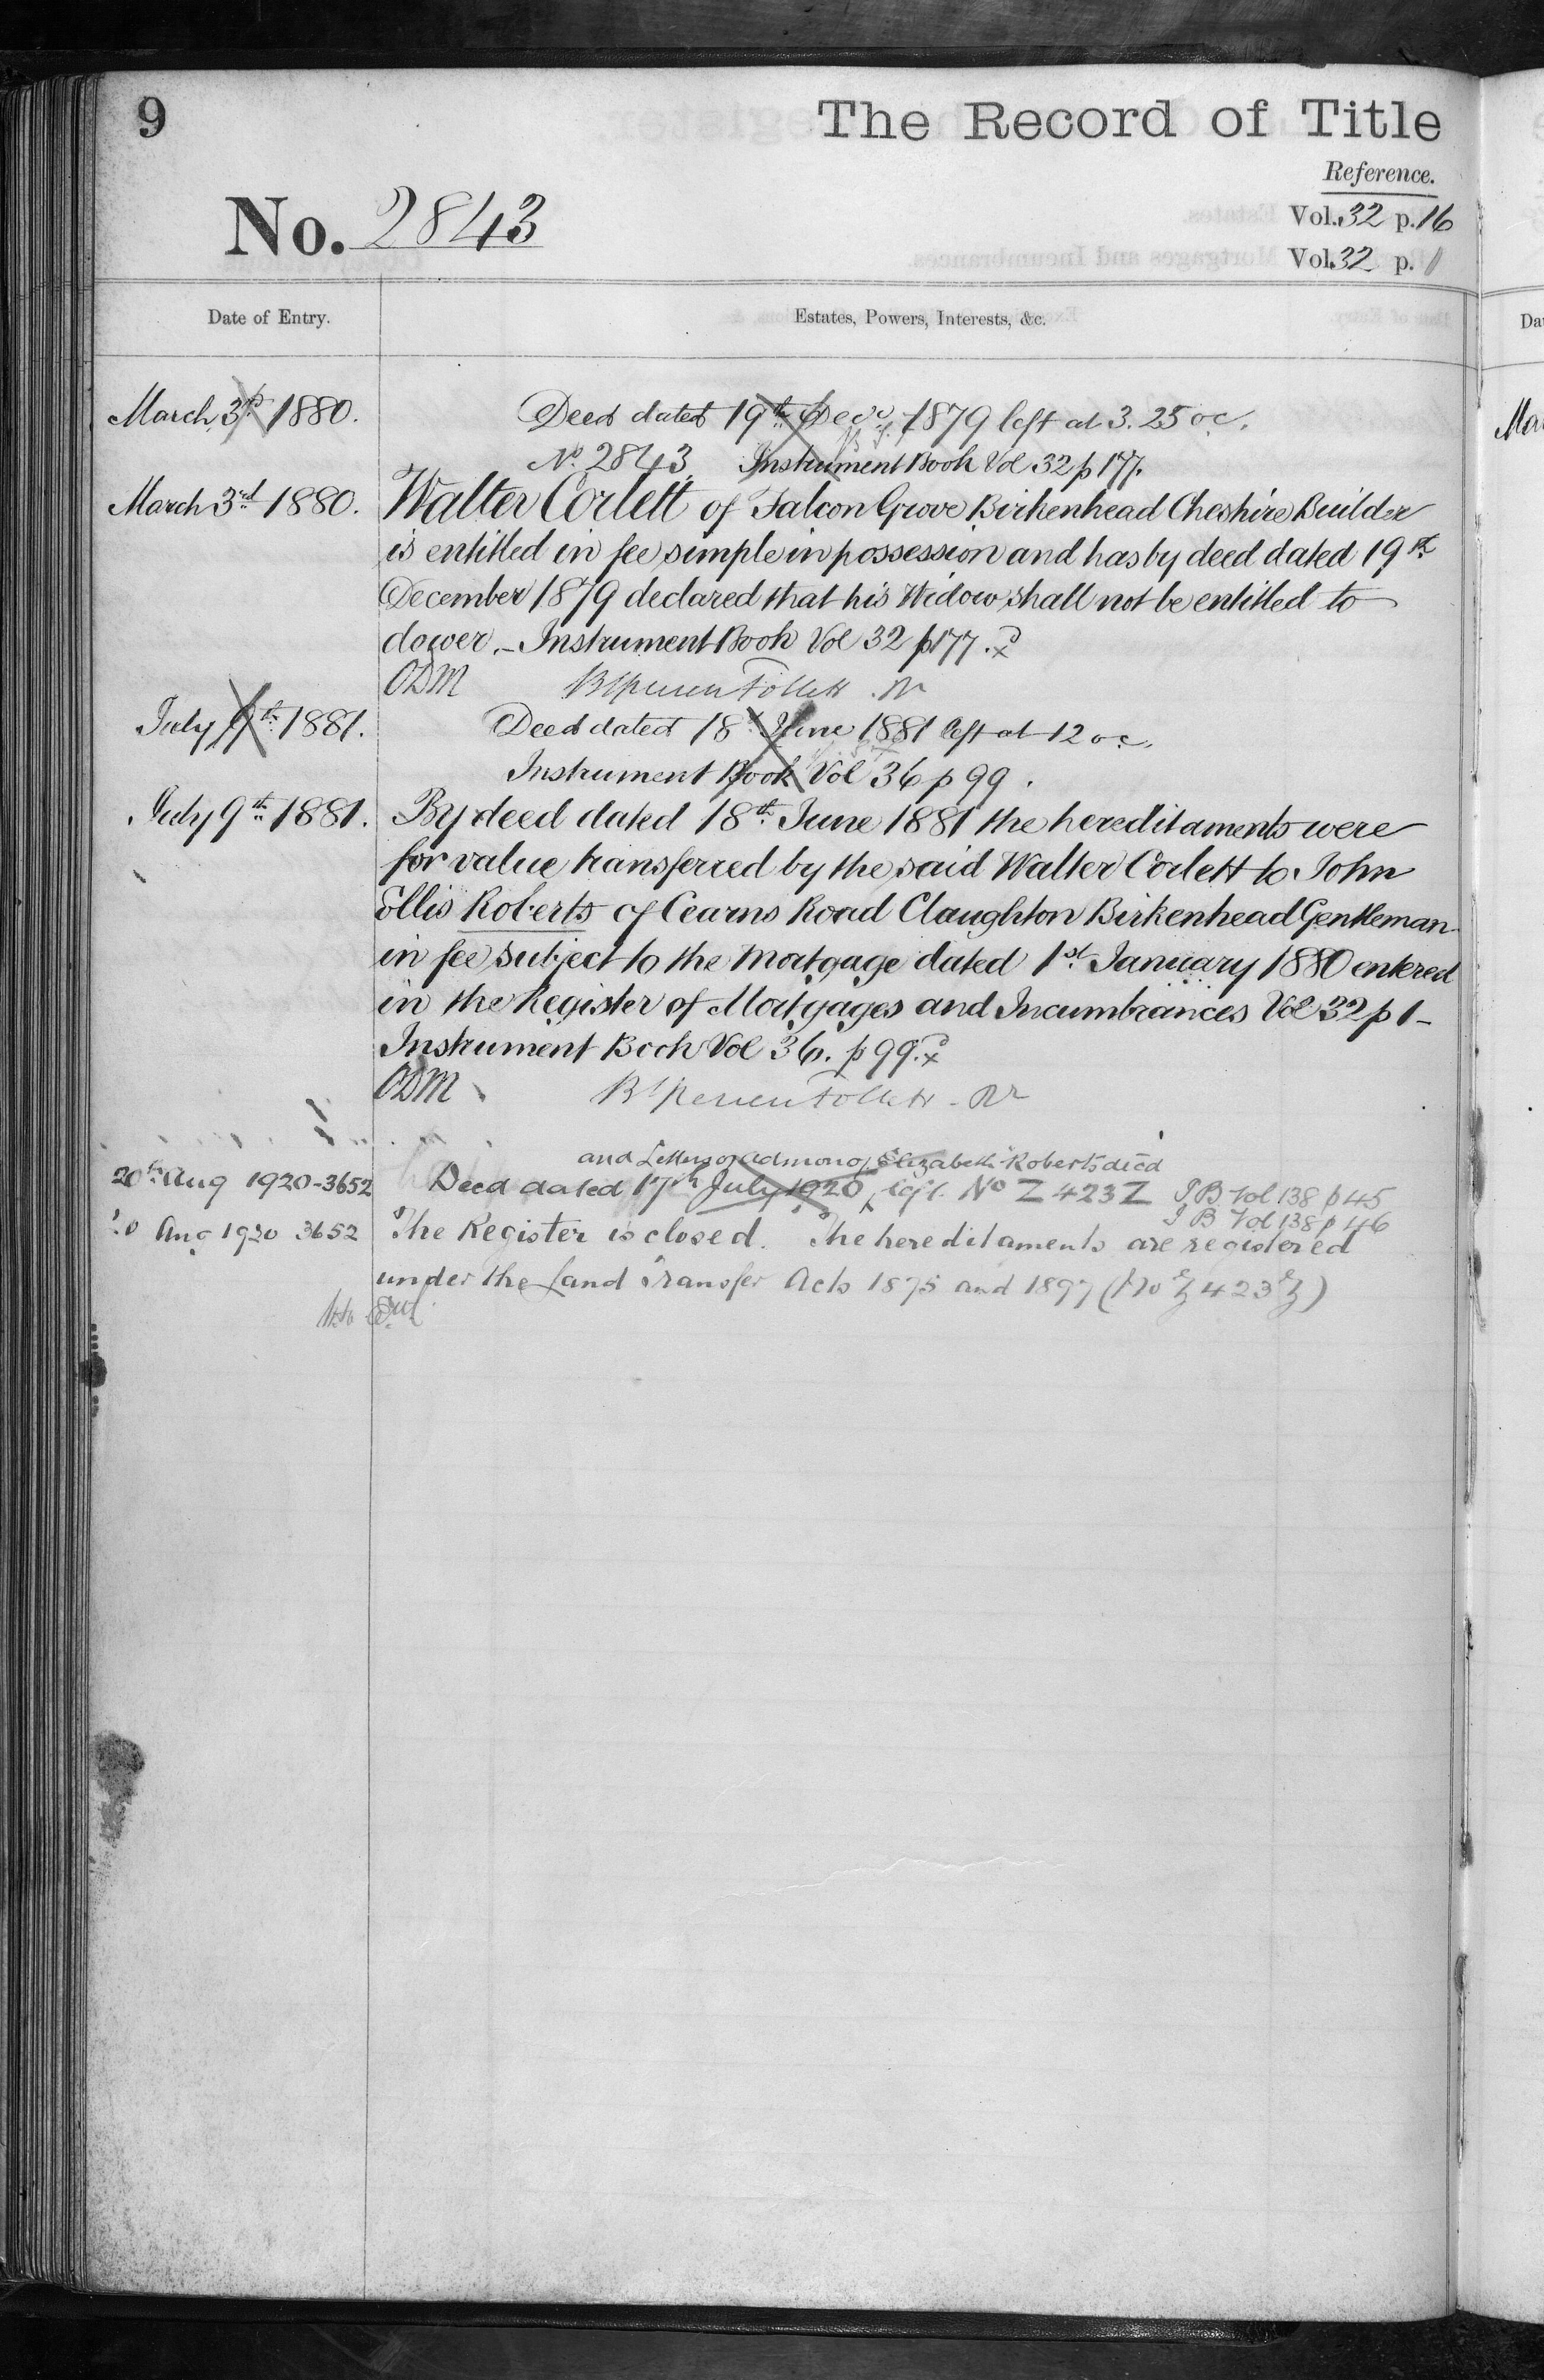 9
The Record of Title
Reference.
No. 2843
Vol. 32 p. 16
Vol. 32 p. 1
Date of Entry.
Estates, Powers, Interests, &c.
March 3rd 1880.
Deed dated 19th Decr 1879 left at 3.25 oc.
No 2843 Instrument Book Vol 32 p 177.
March 3rd 1880.
Walter Corlett of Falcon Grove Birkenhead Cheshire Builder
is entitled in fee simple in possession and has by deed dated 19th
December 1879 declared that his Widow shall not be entitled to
dower. - Instrument Book Vol 32 p 177.
ODM
Follett
July 9th 1881.
Deed dated 18th June 1881 left at 12 oc.
Instrument Book Vol 36 p 99.
July 9th 1881.
By deed dated 18th June 1881 the hereditaments were
for value transferred by the said Walter Corlett to John
Ellis Roberts of Cearns Road Claughton Birkenhead Gentleman
in fee subject to the Mortgage dated 1st January 1880 entered
in the Register of Mortgages and Incumbrances Vol 32 p 1 -
Instrument Book Vol 36. p 99.
ODM
Follett
and Letters of Admon of Elizabeth Roberts decd
20th Aug 1920 - 3652
Deed dated 17th July 1920 No Z 423 Z I B Vol 138 p 45
I B Vol 138 p 46
20 Aug 1920 3652
The Register is closed. The hereditaments are registered
under the Land Transfer Acts 1875 and 1897 (No Z 423 Z)
Da
Mar